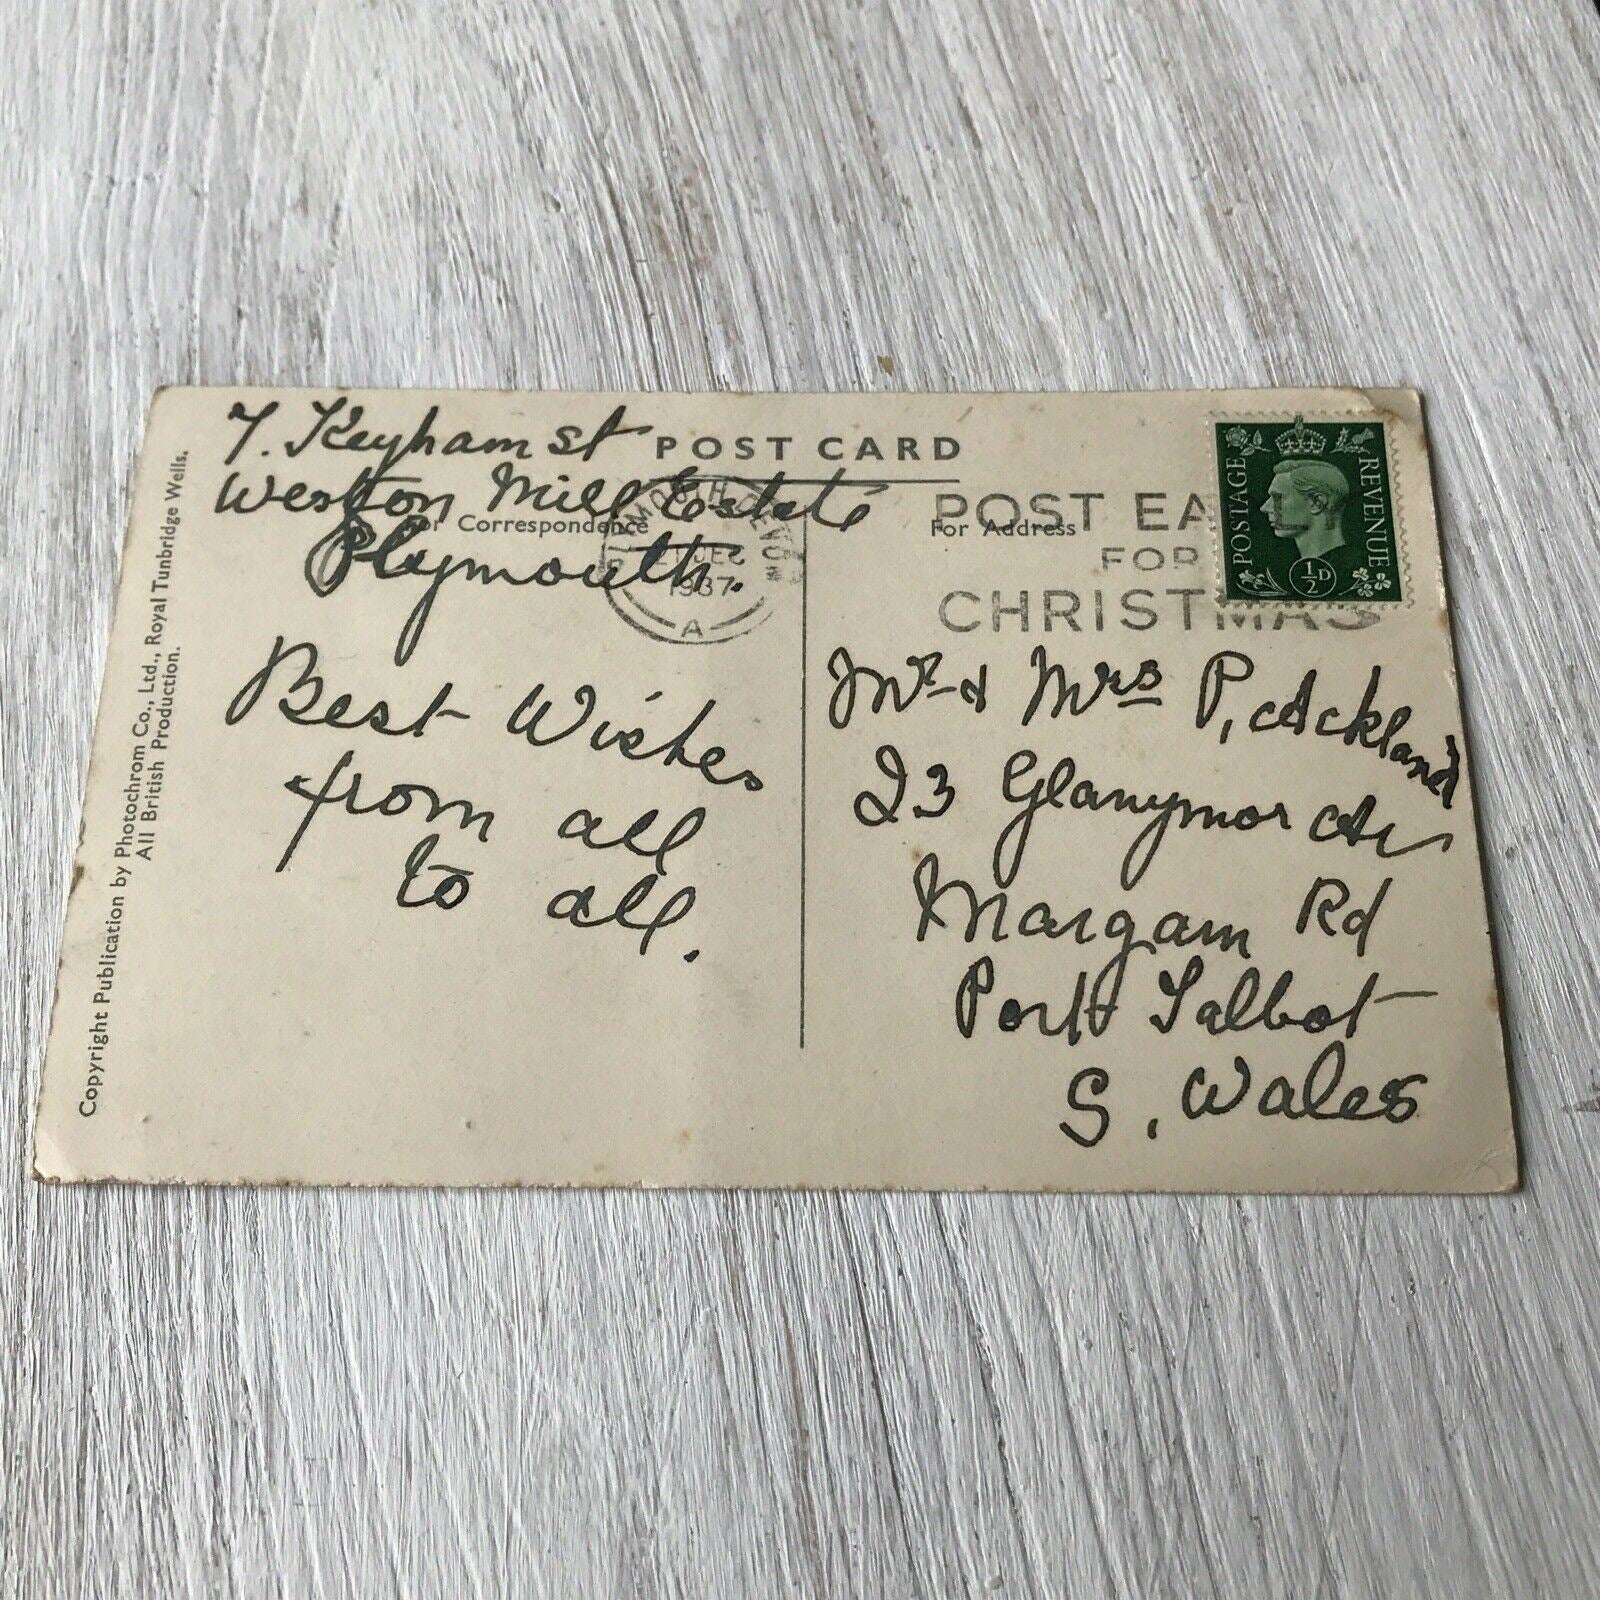 7. Keyham st
Weston Mill Estate
Plymouth.
POST CARD
For Correspondence
For Address
PLYMOUTH DEVON
DEC
1937
A
POST EARLY
FOR
CHRISTMAS
POSTAGE
REVENUE
½D
Best Wishes
from all
to all.
Mr & Mrs P, Ackland
23 Glanymor
Margam Rd
Port Talbot
S. Wales
Copyright Publication by Photochrom Co., Ltd., Royal Tunbridge Wells.
All British Production.